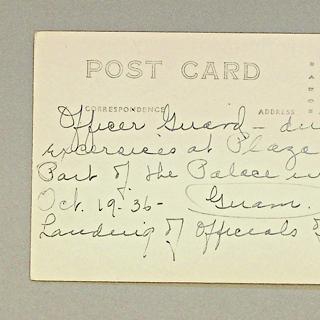 POST CARD
CORRESPONDENCE ADDRESS
Officer Guard - du
Excersices at Plaza
Part of the Palace in
Oct. 19-36- Guam.
Landing of Officials